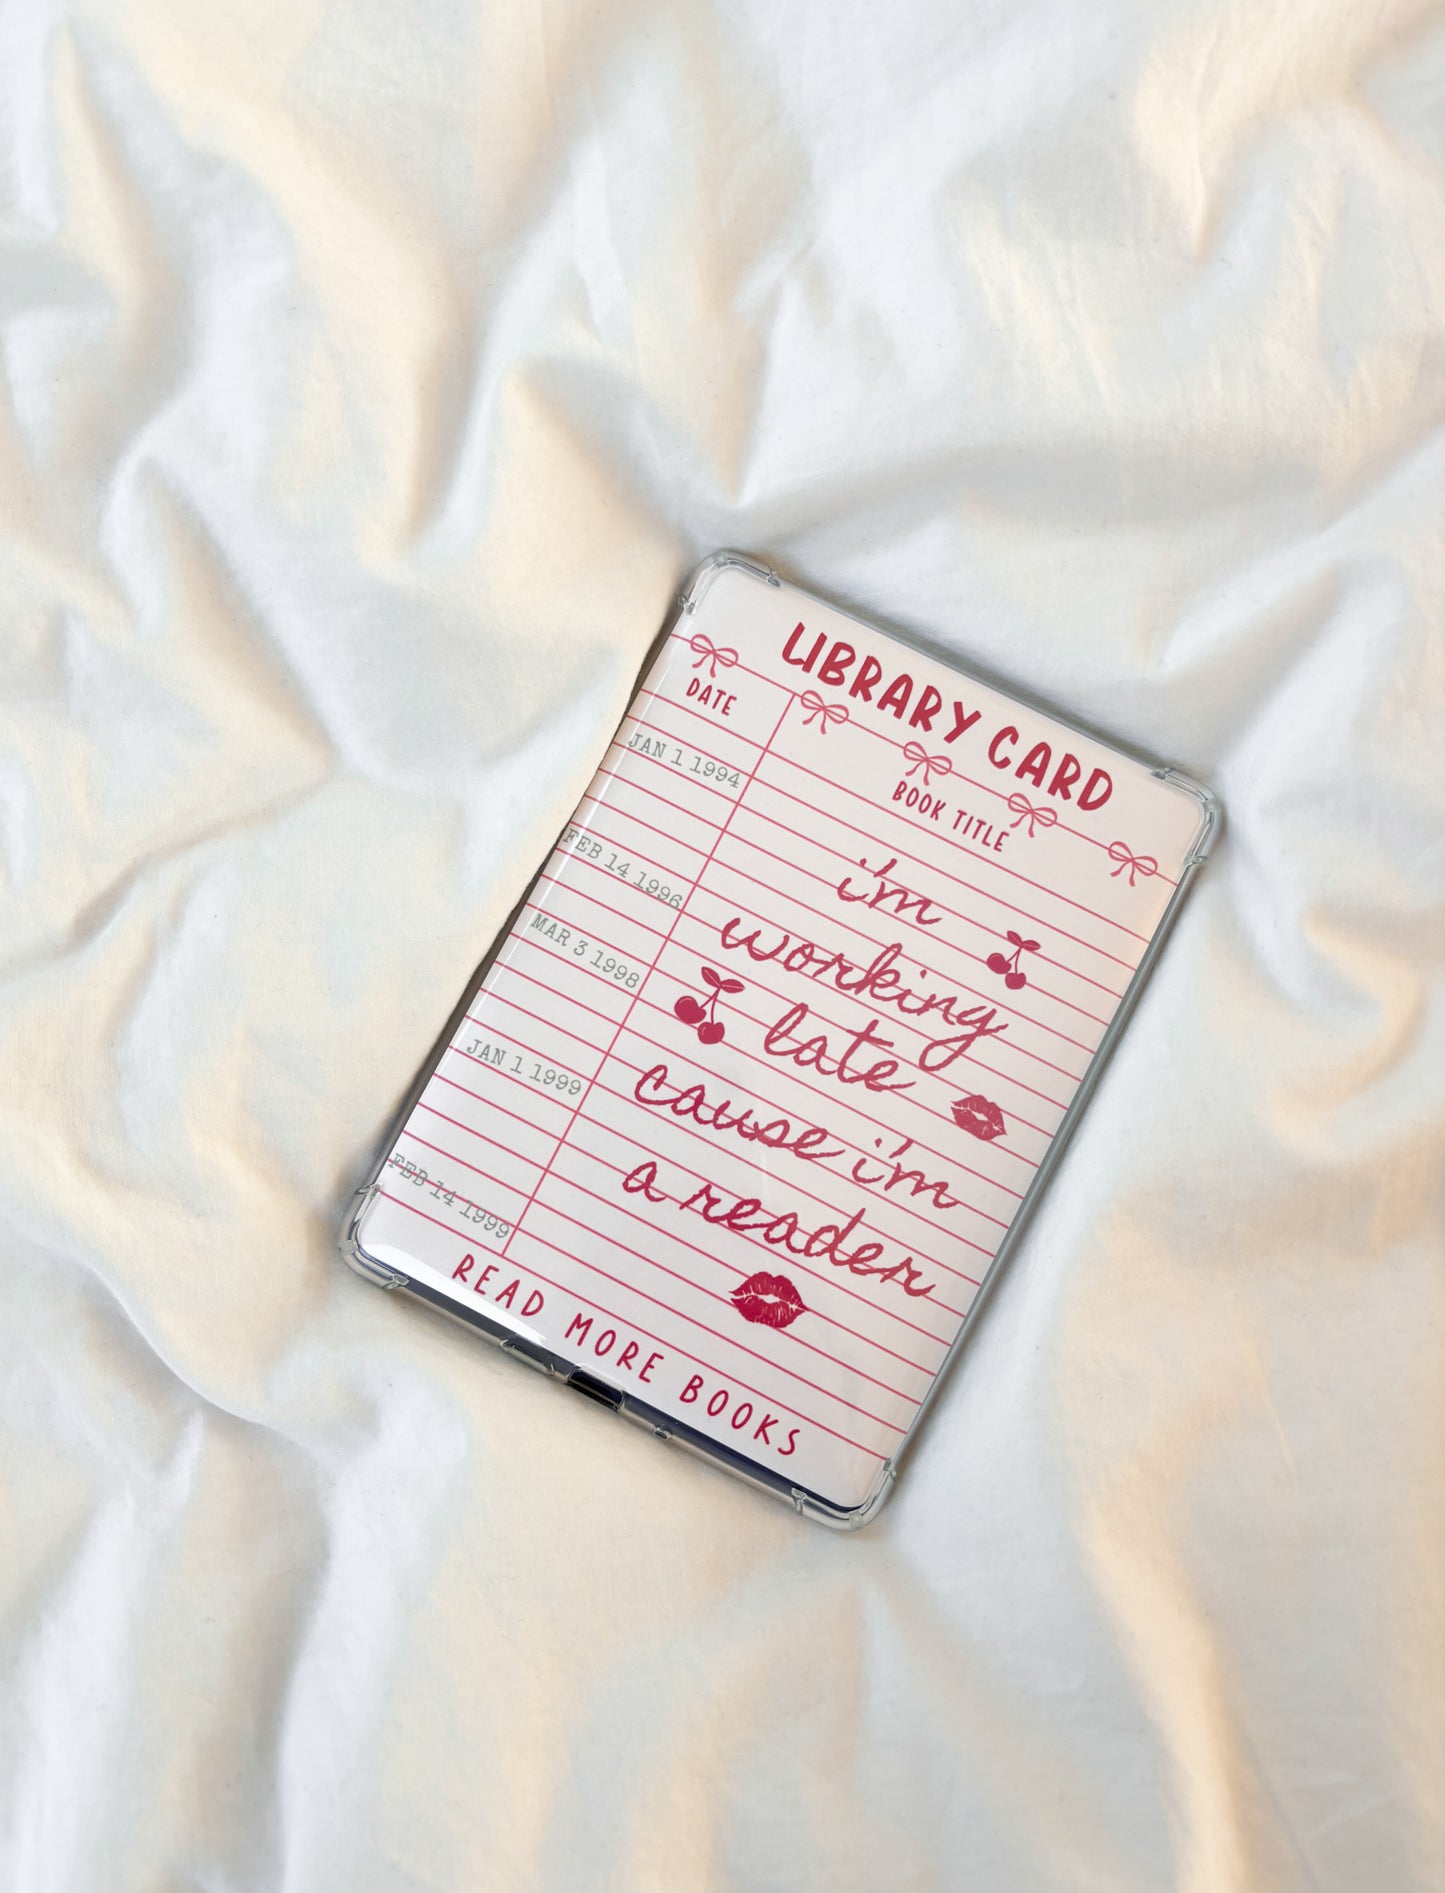 LIBRARY CARD
DATE
BOOK TITLE
JAN 1 1994
FEB 14 1996
MAR 3 1998
JAN 1 1999
FEB 14 1999
i'm
working
late
cause i'm
a reader
READ MORE BOOKS